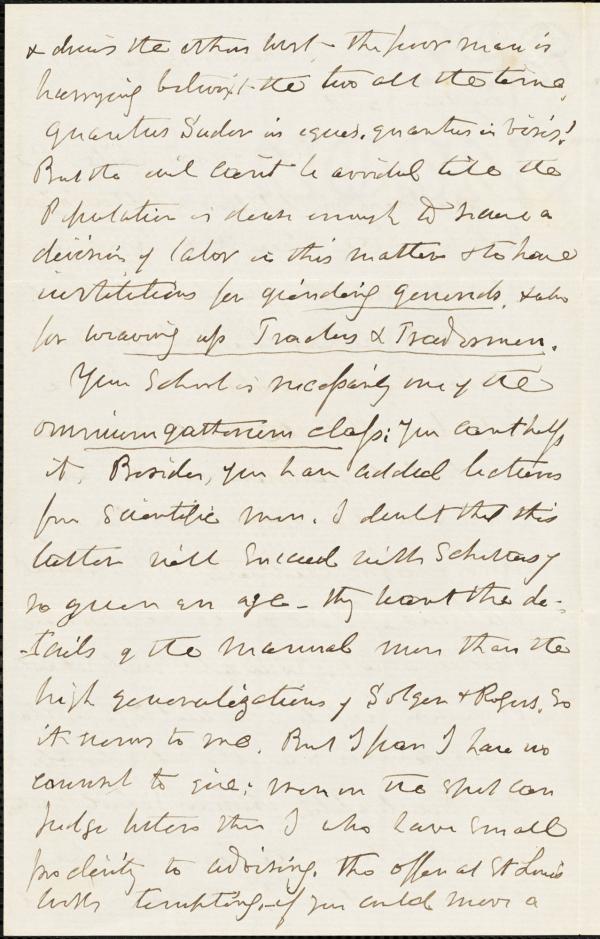 & drives the others west – the poor man is
hurrying betwixt the two all the time,
quantus Sudor in eques, quantus in viris!
But the evil can't be avoided till the
Population is dense enough to have a
division of labor in this matter & to have
institutions for grinding generals, & also
for weaving up Traders & Tradesmen.
Your School is necessarily one of the
omnium gatherum class; you can't help
it. Besides, you have added lectures
from Scientific men. I doubt that this
latter will succeed with Scholars of
so green an age – they want the de-
-tails of the manual more than the
high generalizations of Solger & Rogers. So
it seems to me. But I fear I have no
counsel to give; men on the spot can
judge better than I who have small
proclivity to advising. The offer at St Louis
looks tempting – if you could move a